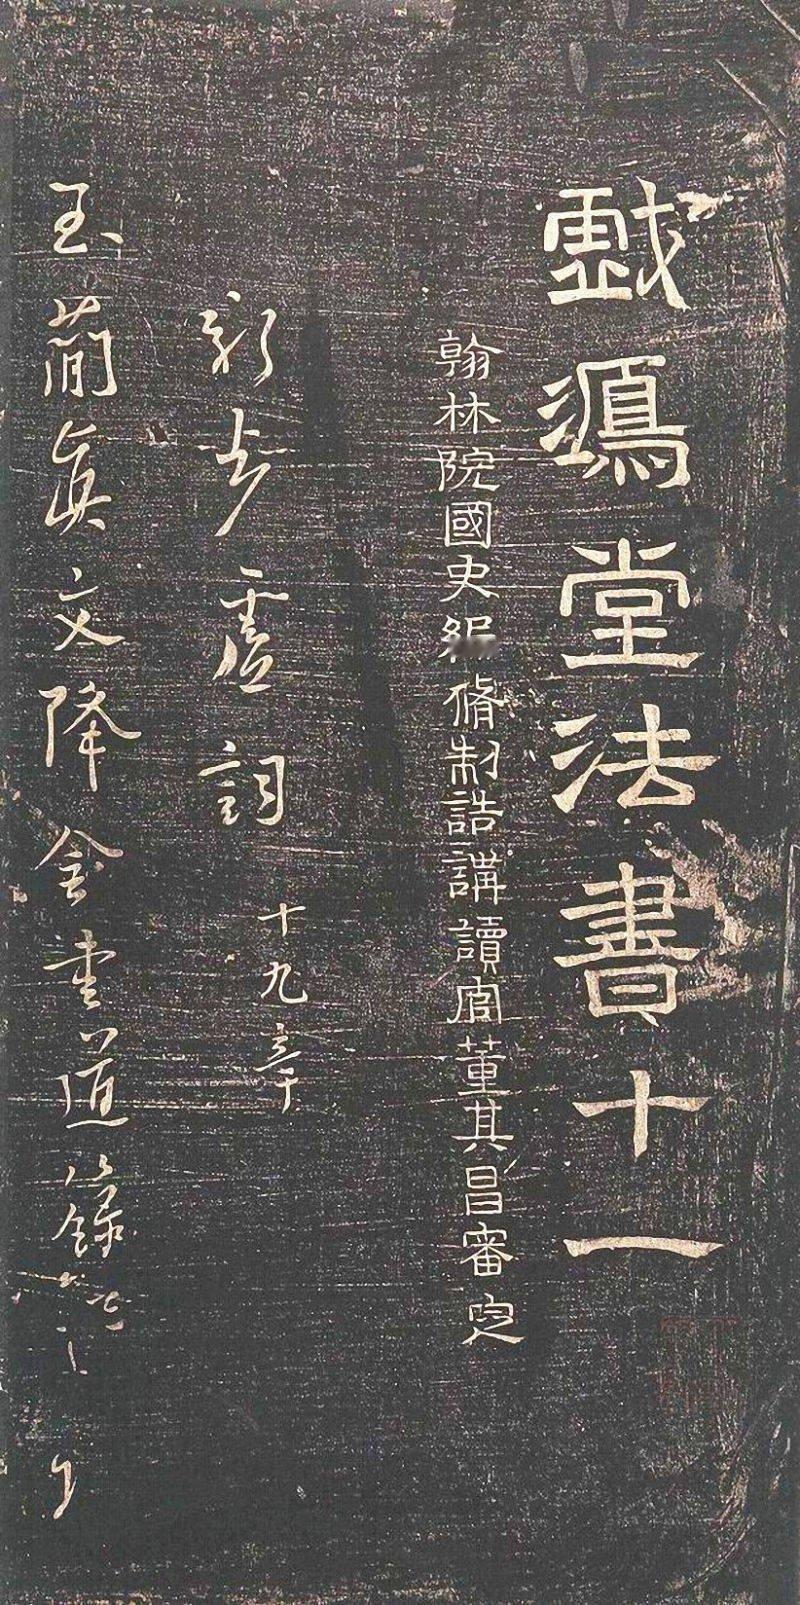 戲鴻堂法書十一
翰林院國史編脩制誥講讀官董其昌審定
新步虛詞 十九章
玉簡眞文降金書道籙